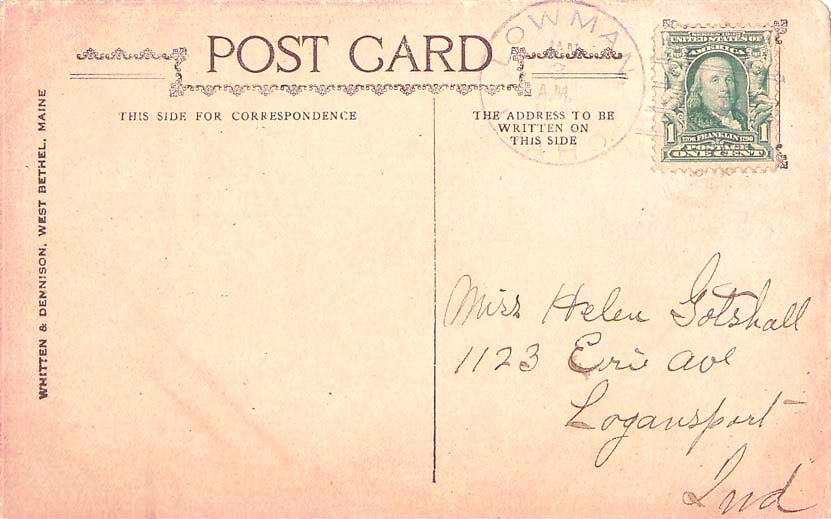 POST CARD
THIS SIDE FOR CORRESPONDENCE
THE ADDRESS TO BE
WRITTEN ON
THIS SIDE
LOWMAN
JAN
A.M.
SERIES 1902
UNITED STATES OF
AMERICA
1 1706 FRANKLIN 1790 1
POSTAGE
ONE CENT
WHITTEN & DENNISON, WEST BETHEL, MAINE
Miss Helen Gotshall
1123 Erie Ave
Logansport
Ind